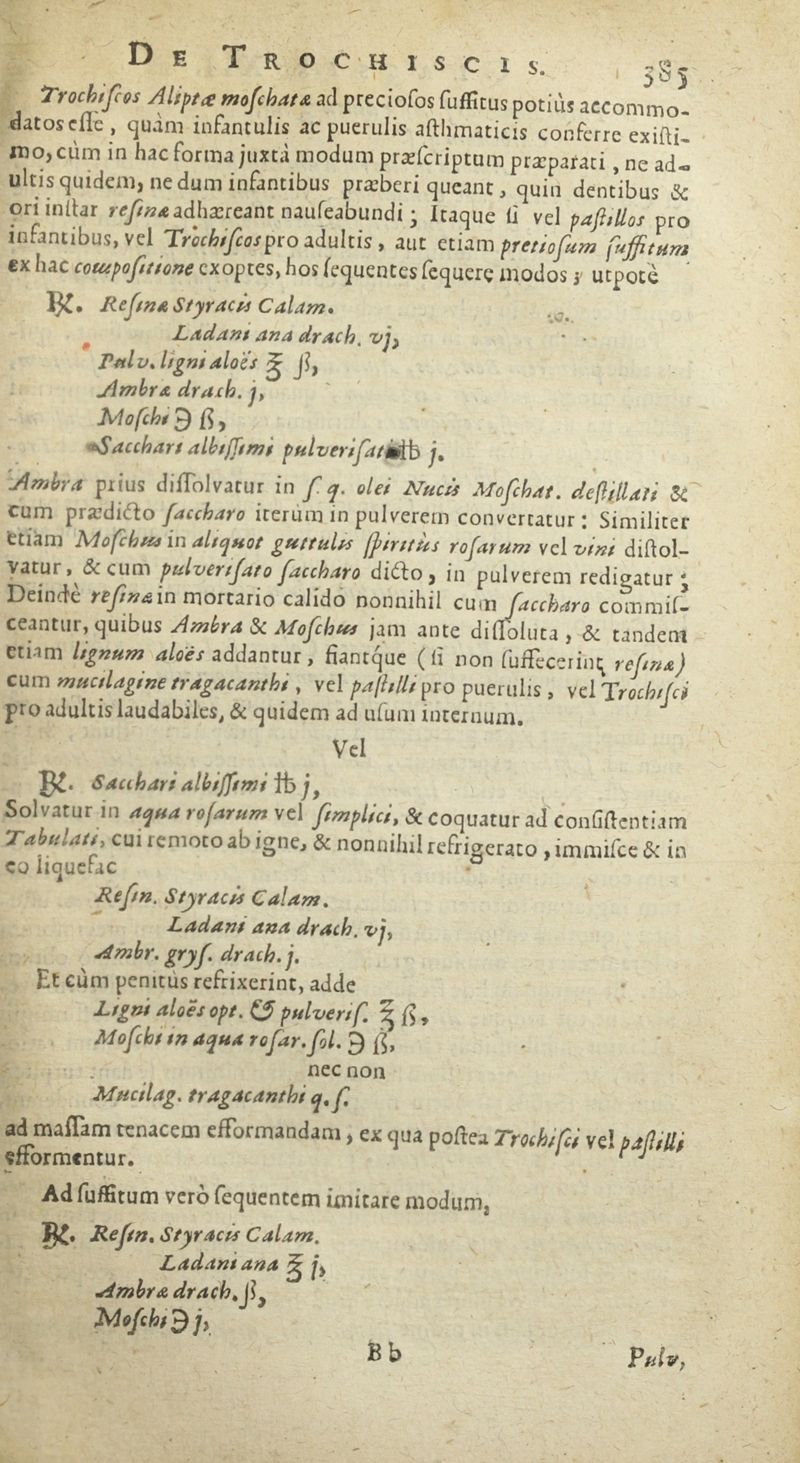 DE TROCHISCIS. 385
Trochiſcos Aliptæ moſchatæ ad preciofos ſuffitus potiùs accommo-
datos eſſe, quàm infantulis ac puerulis aſthmaticis conferre exiſti-
mo, cùm in hac forma juxtà modum præſcriptum præparati, ne ad-
ultis quidem, ne dum infantibus præberi queant, quin dentibus &
ori inſtar reſinæ adhæreant nauſeabundi; Itaque ſi vel paſtillos pro
infantibus, vel Trochiſcos pro adultis, aut etiam pretioſum ſuffitum
ex hac compoſitione exoptes, hos ſequentes ſequere modos; utpotè
℞. Reſinæ Styracis Calam.
Ladani ana drach. vj,
Pulv. ligni aloës ℥ ß,
Ambræ drach. j,
Moſchi ℈ ß,
Sacchari albiſſimi pulveriſati ℔ j.
Ambra priùs diſſolvatur in ſ. q. olei Nucis Moſchat. deſtillati &
cum prædicto ſaccharo iterùm in pulverem convertatur: Similiter
etiam Moſchus in aliquot guttulis ſpiritûs roſarum vel vini diſſol-
vatur, & cum pulveriſato ſaccharo dicto, in pulverem redigatur;
Deindè reſinæ in mortario calido nonnihil cum ſaccharo commiſ-
ceantur, quibus Ambra & Moſchus jam ante diſſoluta, & tandem
etiam lignum aloës addantur, fiantque (ſi non ſuffecerint reſinæ)
cum mucilagine tragacanthi, vel paſtilli pro puerulis, vel Trochiſci
pro adultis laudabiles, & quidem ad uſum internum.
Vel
℞. Sacchari albiſſimi ℔ j,
Solvatur in aqua roſarum vel ſimplici, & coquatur ad conſiſtentiam
Tabulati, cui remoto ab igne, & nonnihil refrigerato, immiſce & in
eo liquefac
Reſin. Styracis Calam.
Ladani ana drach. vj,
Ambr. gryſ. drach. j.
Et cùm penitùs refrixerint, adde
Ligni aloës opt. & pulveriſ. ℥ ß,
Moſchi in aqua roſar. ſol. ℈ ß,
nec non
Mucilag. tragacanthi q. ſ.
ad maſſam tenacem efformandam, ex qua poſtea Trochiſci vel paſtilli
efformentur.
Ad ſuffitum verò ſequentem imitare modum,
℞. Reſin. Styracis Calam.
Ladani ana ℥ j,
Ambræ drach. ß,
Moſchi ℈ j,
Bb Pulv,